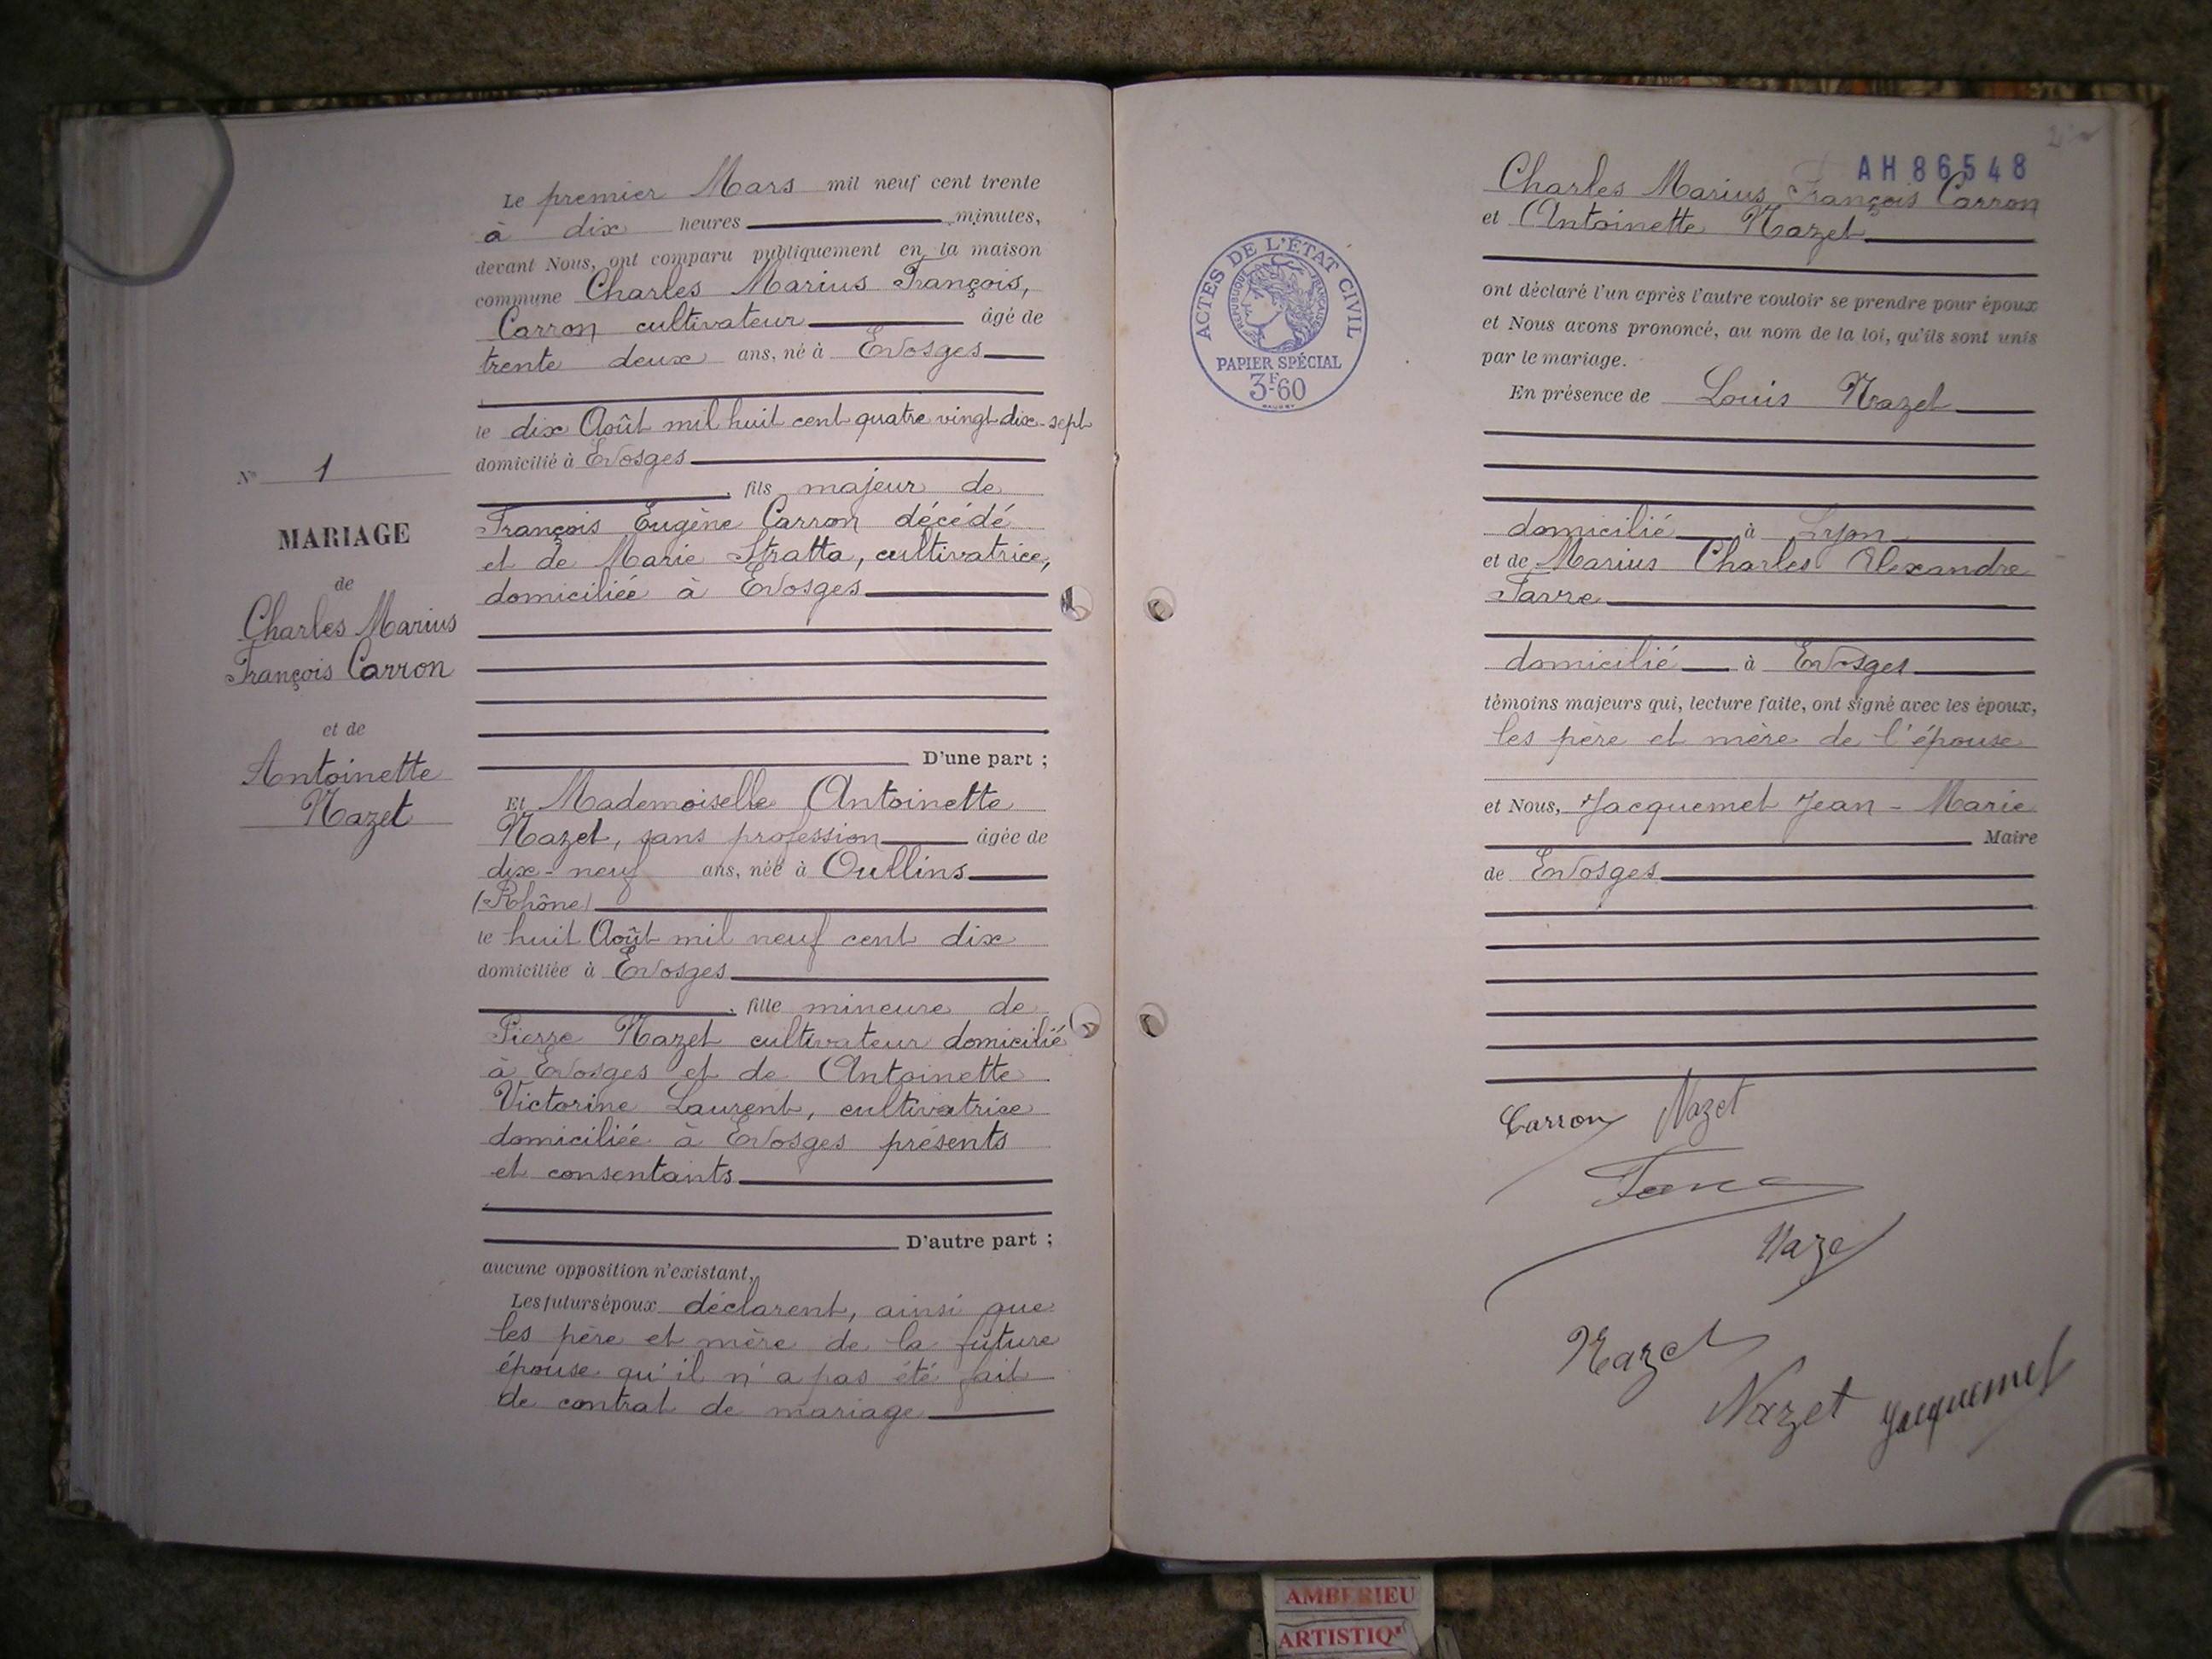 Le premier Mars mil neuf cent trente
à dix heures minutes,
devant Nous, ont comparu publiquement en la maison
commune Charles Marius François,
Carron cultivateur âgé de
trente deux ans, né à Evosges
le dix Août mil huit cent quatre vingt dix-sept
domicilié à Evosges
, fils majeur de
François Eugène Carron décédé
et de Marie Stratta, cultivatrice,
domiciliée à Evosges
D'une part ;
N° 1
MARIAGE
de
Charles Marius
François Carron
et de
Antoinette
Nazet
Et Mademoiselle Antoinette
Nazet, sans profession âgée de
dix-neuf ans, née à Oullins
(Rhône)
le huit Août mil neuf cent dix
domiciliée à Evosges
, fille mineure de
Pierre Nazet cultivateur domicilié
à Evosges et de Antoinette
Victorine Laurent, cultivatrice
domiciliée à Evosges présents
et consentants
D'autre part ;
aucune opposition n'existant,
Les futurs époux déclarent, ainsi que
les père et mère de la future
épouse qu'il n'a pas été fait
de contrat de mariage
ACTES DE L'ÉTAT CIVIL
RÉPUBLIQUE FRANÇAISE
PAPIER SPÉCIAL
3F60
AH86548
Charles Marius François Carron
et Antoinette Nazet
ont déclaré l'un après l'autre vouloir se prendre pour époux
et Nous avons prononcé, au nom de la loi, qu'ils sont unis
par le mariage.
En présence de Louis Nazet
domicilié à Lyon
et de Marius Charles Alexandre
Favre
domicilié à Evosges
témoins majeurs qui, lecture faite, ont signé avec les époux,
les père et mère de l'épouse
et Nous, Jacquemet Jean-Marie
Maire
de Evosges
Carron Nazet
Nazet
Nazet
Nazet Jacquemet
AMBERIEU
ARTISTIQ